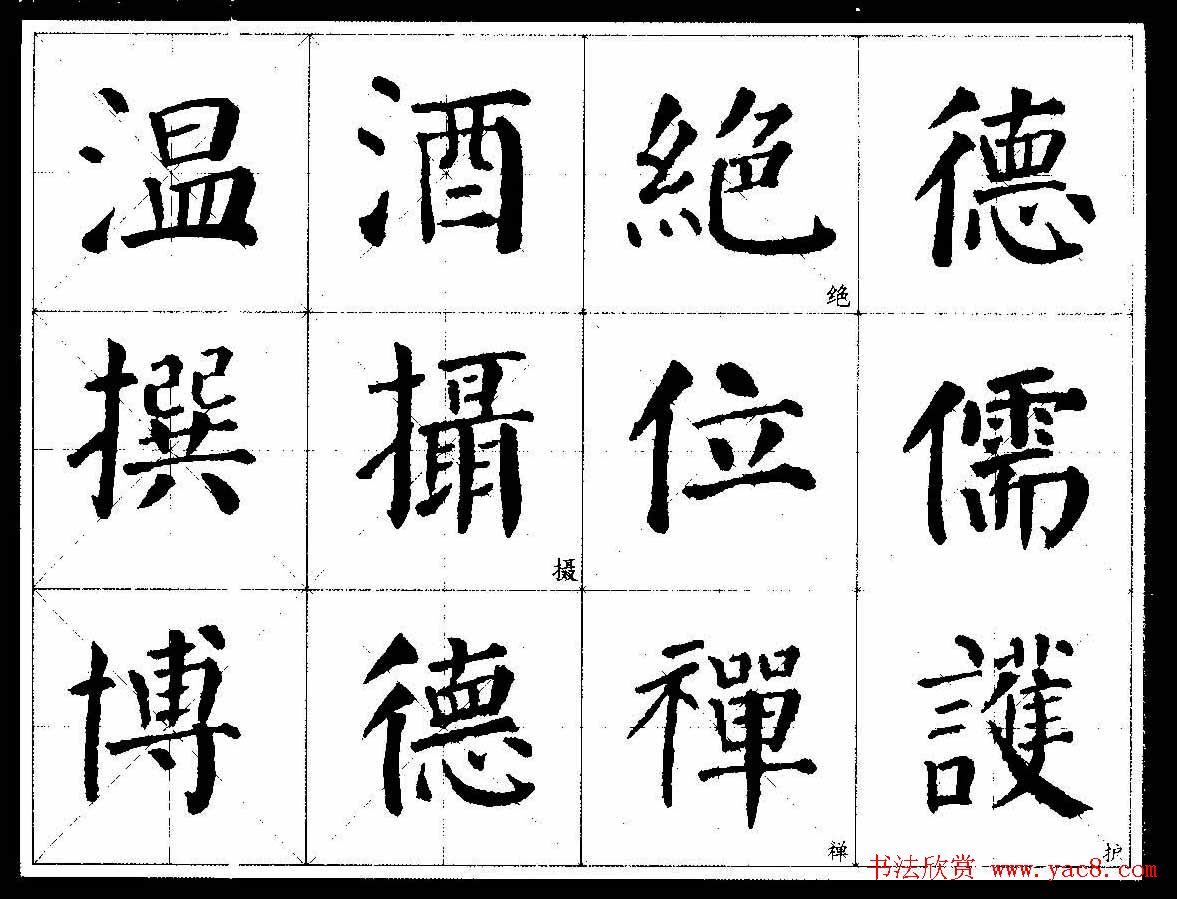 温酒絕德
绝
撰攝位儒
摄
博德禪護
禅 护
书法欣赏 www.yac8.com